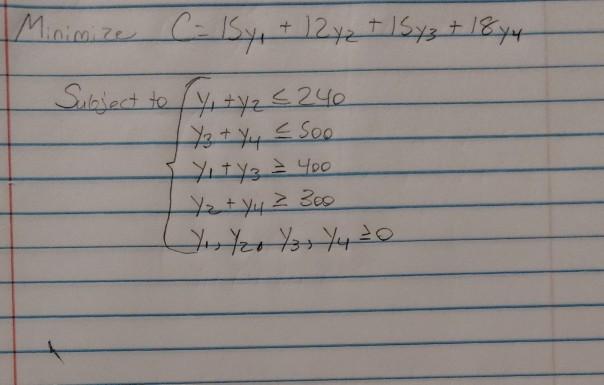 Minimize C = 15y₁ + 12y₂ + 15y₃ + 18y₄
Subject to { y₁ + y₂ ≤ 240
y₃ + y₄ ≤ 500
y₁ + y₃ ≥ 400
y₂ + y₄ ≥ 300
y₁, y₂, y₃, y₄ ≥ 0